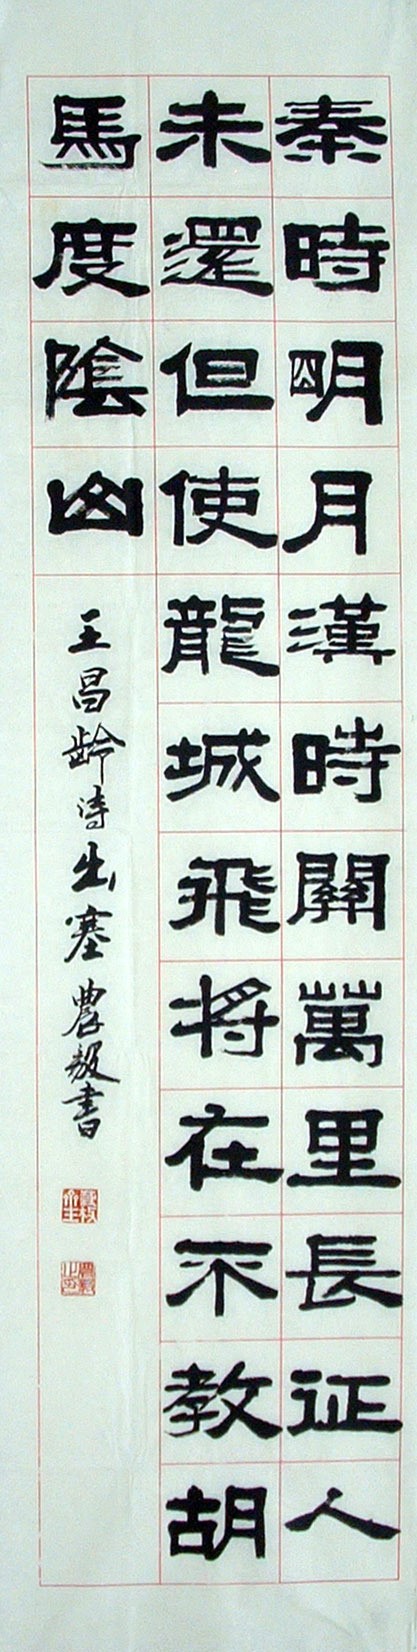 秦時明月漢時關萬里長征人
未還但使龍城飛将在不教胡
馬度陰山
王昌龄诗出塞農毅書